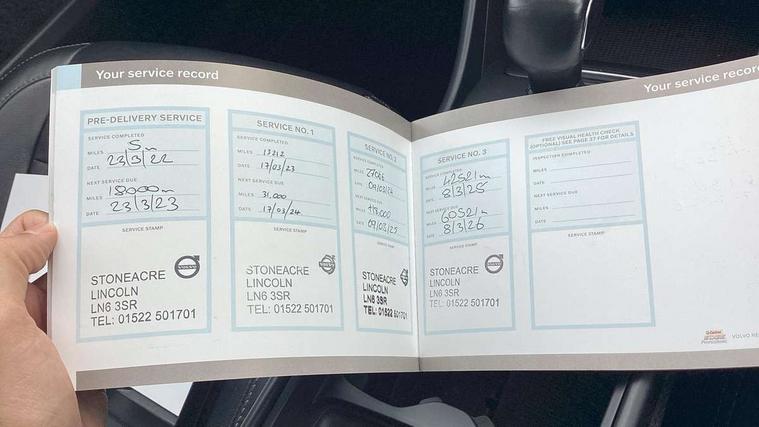 Your service record
PRE-DELIVERY SERVICE
SERVICE COMPLETED
MILES 5m
DATE 23/3/22
NEXT SERVICE DUE
MILES 18000m
DATE 23/3/23
SERVICE STAMP
VOLVO
STONEACRE
LINCOLN
LN6 3SR
TEL: 01522 501701
SERVICE NO. 1
SERVICE COMPLETED
MILES 13212
DATE 17/03/23
NEXT SERVICE DUE
MILES 31,000
DATE 17/03/24
SERVICE STAMP
STONEACRE
LINCOLN
LN6 3SR
TEL: 01522 501701
SERVICE NO. 2
SERVICE COMPLETED
MILES
DATE 09/03/24
NEXT SERVICE DUE
MILES
DATE 09/03/25
SERVICE STAMP
STONEACRE
LINCOLN
LN6 3SR
TEL: 01522 501701
Your service record
SERVICE NO. 3
SERVICE COMPLETED
MILES 42521m
DATE 8/3/25
NEXT SERVICE DUE
MILES 60521m
DATE 8/3/26
SERVICE STAMP
STONEACRE
LINCOLN
LN6 3SR
TEL: 01522 501701
FREE VISUAL HEALTH CHECK
(OPTIONAL) SEE PAGE 37 FOR DETAILS
INSPECTION COMPLETED
MILES
DATE
NEXT SERVICE DUE
MILES
DATE
SERVICE STAMP
Castrol
EDGE
Professional
VOLVO RE